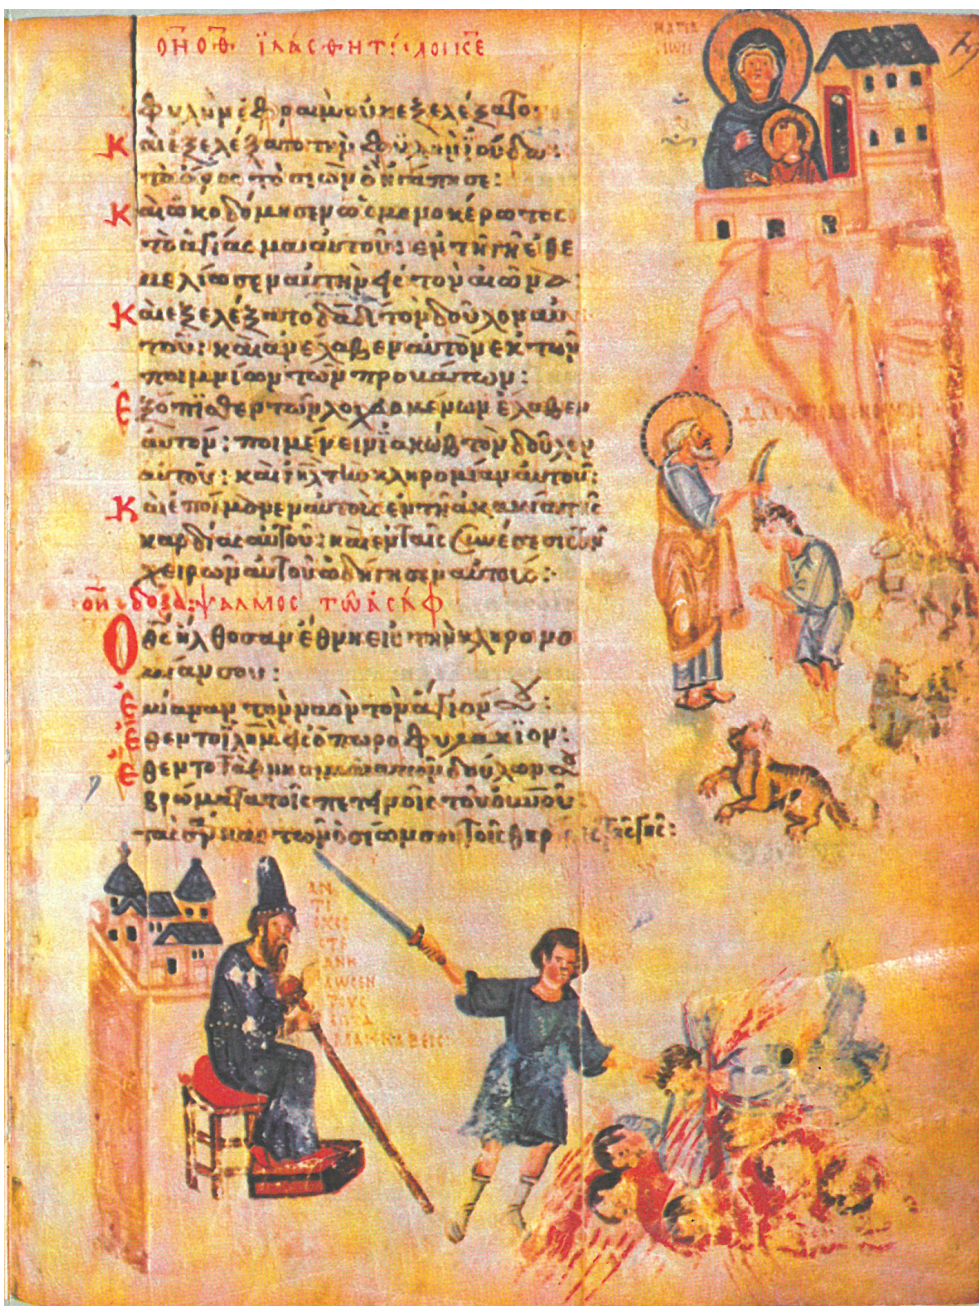 φυλὴν ἐφραὶμ οὐκ ἐξελέξατο:
Καὶ ἐξελέξατο τὴν φυλὴν ἰούδα:
τὸ ὄρος τὸ σιὼν ὃ ἠγάπησε:
Καὶ ὠκοδόμησεν ὡς μονοκέρωτος
τὸ ἁγίασμα αὐτοῦ: ἐν τῆ γῆ ἐθε
μελίωσεν αὐτὴν εἰς τὸν αἰῶνα:
Καὶ ἐξελέξατο δᾱδ τὸν δοῦλον αὐ
τοῦ: καὶ ἀνέλαβεν αὐτὸν ἐκ τῶν
ποιμνίων τῶν προβάτων:
Ἐξόπισθεν τῶν ἔλαβεν
αὐτόν: ποιμένειν ἰακὼβ τὸν δοῦλον
αὐτοῦ: καὶ ἰη̄λ τὴν κληρομίαν αὐτοῦ:
Καὶ ἐποίμανεν αὐτοὺς ἐν τῆ ἀκακία τῆς
καρδίας αὐτοῦ: καὶ ἐν ταῖς συνέσεσι τῶν
χειρῶν αὐτοῦ ὡδήγησεν αὐτούς:
ΟΗ δόξα: ΨΑΛΜΟΣ ΤΩ ΑΣΑΦ
Ὁ θ̄ς ἤλθοσαν ἔθνη εἰς τὴν κληρονο
μίαν σου:
Ἐμίαναν τὸν ναὸν τὸν ἅγιόν σου:
Ἔθεντο ἰλ̄ημ ὡς ὀπωροφυλάκιον:
Ἔθεντο τὰ θνησιμαῖα τῶν δούλων σου
βρώματα τοῖς πετεινοῖς τοῦ οὐνοῦ:
τὰς σάρκας τῶν ὁσίων σου τοῖς θηρίοις τῆς γῆς:
ΑΝ
ΤΙ
ΟΧΟΣ
ΤΟΥΣ
ΜΑΚΚΑΒΕΙΣ: